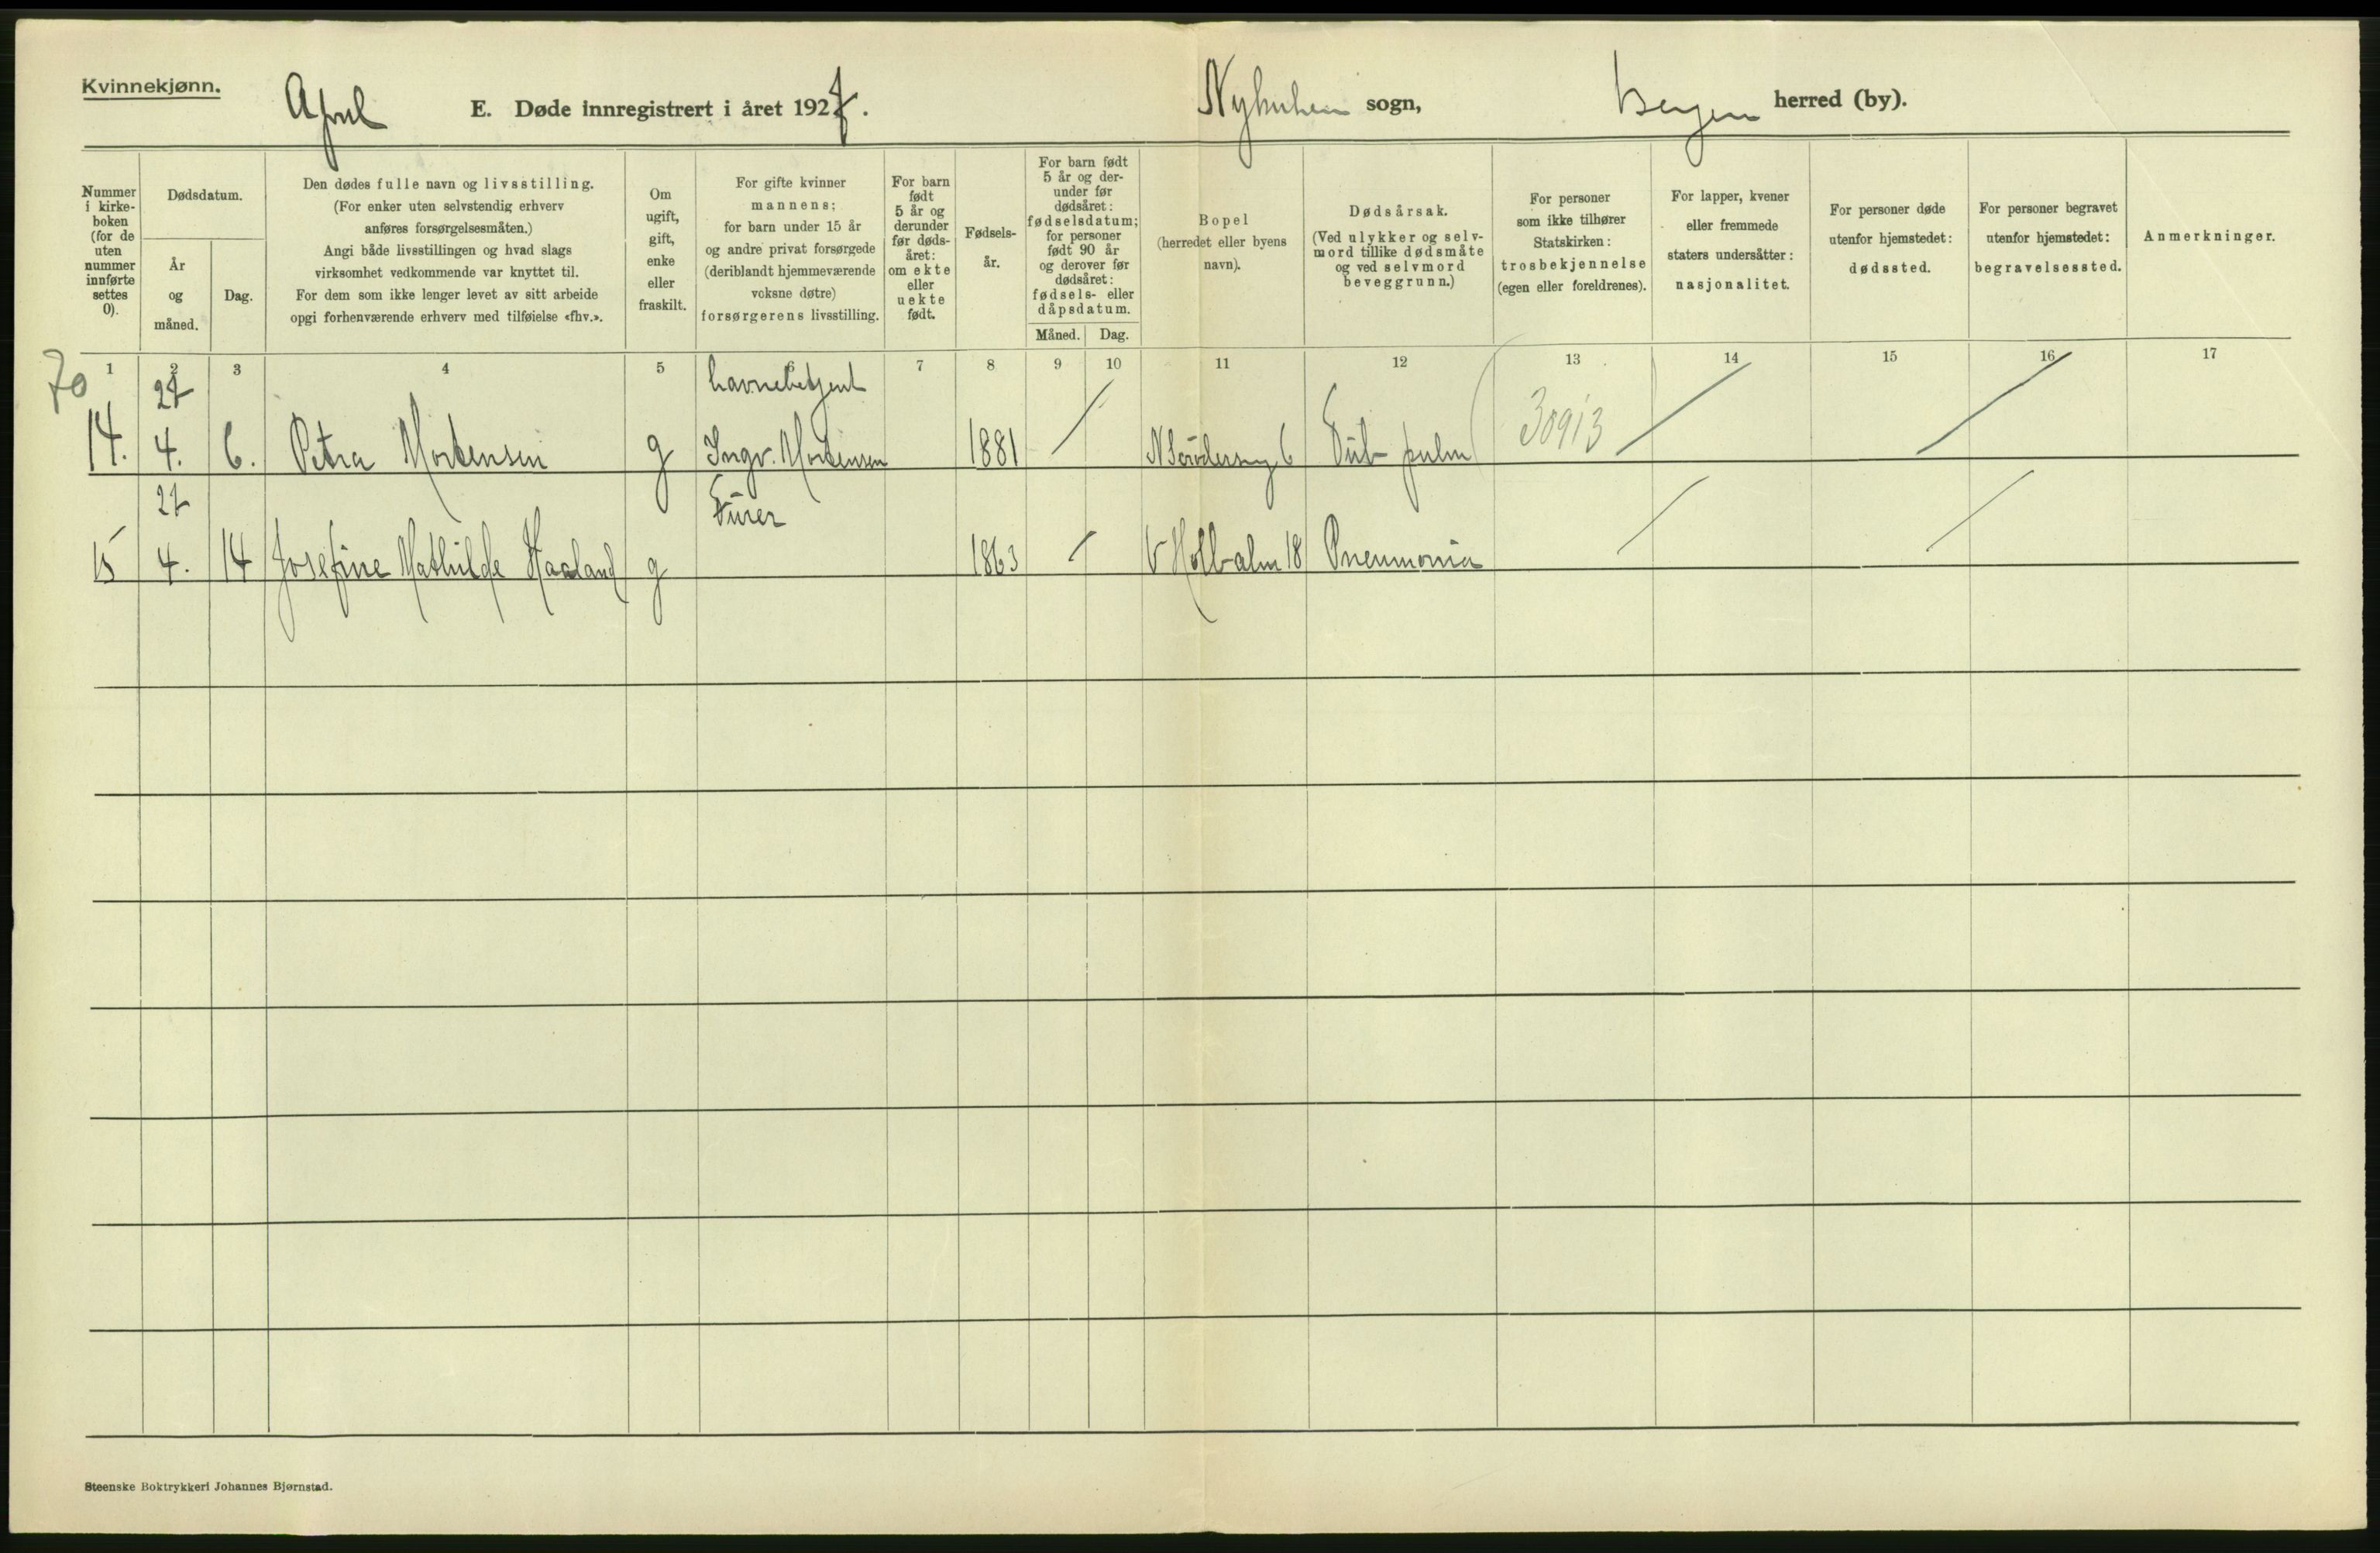 Kvinnekjønn.
April
E. Døde innregistrert i året 1927.
sogn,
Bergen herred (by).
Nummer i kirke-boken (for de uten nummer innførte settes 0).
Dødsdatum.
År og måned.
Dag.
Den dødes fulle navn og livsstilling.
(For enker uten selvstendig erhverv
anføres forsørgelsesmåten.)
Angi både livsstillingen og hvad slags
virksomhet vedkommende var knyttet til.
For dem som ikke lenger levet av sitt arbeide
opgi forhenværende erhverv med tilføielse «fhv.».
Om
ugift,
gift,
enke
eller
fraskilt.
For gifte kvinner
mannens;
for barn under 15 år
og andre privat forsørgede
(deriblandt hjemmeværende
voksne døtre)
forsørgerens livsstilling.
For barn
født
5 år og
derunder
før døds-
året:
om ekte
eller
uekte
født.
Fødsels-
år.
For barn født
5 år og der-
under før
dødsåret:
fødselsdatum;
for personer
født 90 år
og derover før
dødsåret:
fødsels- eller
dåpsdatum.
Måned. Dag.
Bopel
(herredet eller byens
navn).
Dødsårsak.
(Ved ulykker og selv-
mord tillike dødsmåte
og ved selvmord
beveggrunn.)
For personer
som ikke tilhører
Statskirken:
trosbekjennelse
(egen eller foreldrenes).
For lapper, kvener
eller fremmede
staters undersåtter:
nasjonalitet.
For personer døde
utenfor hjemstedet:
dødssted.
For personer begravet
utenfor hjemstedet:
begravelsessted.
Anmerkninger.
1 2 3 4 5 7 8 9 10 11 12 13 14 15 16 17
70
27 havnebetjent
14. 4. 6. Petra Mortensen g Ingv. Mortensen 1881 6 Tub pulm 30913
27
15 4. 14 Josefine Mathilde Haaland g 1863 18 Pneumonia
Steenske Boktrykkeri Johannes Bjørnstad.